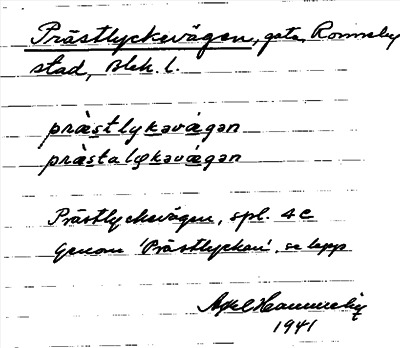 Prästlyckevägen, gata, Ronneby
stad, Blek. l.
præ̀stlykəvä́gən
præ̀stalykəvä́gən
Prästlyckevägen, spl. 4c
Genom 'Prästlyckan', se lapp
Axel Hannerby
1941